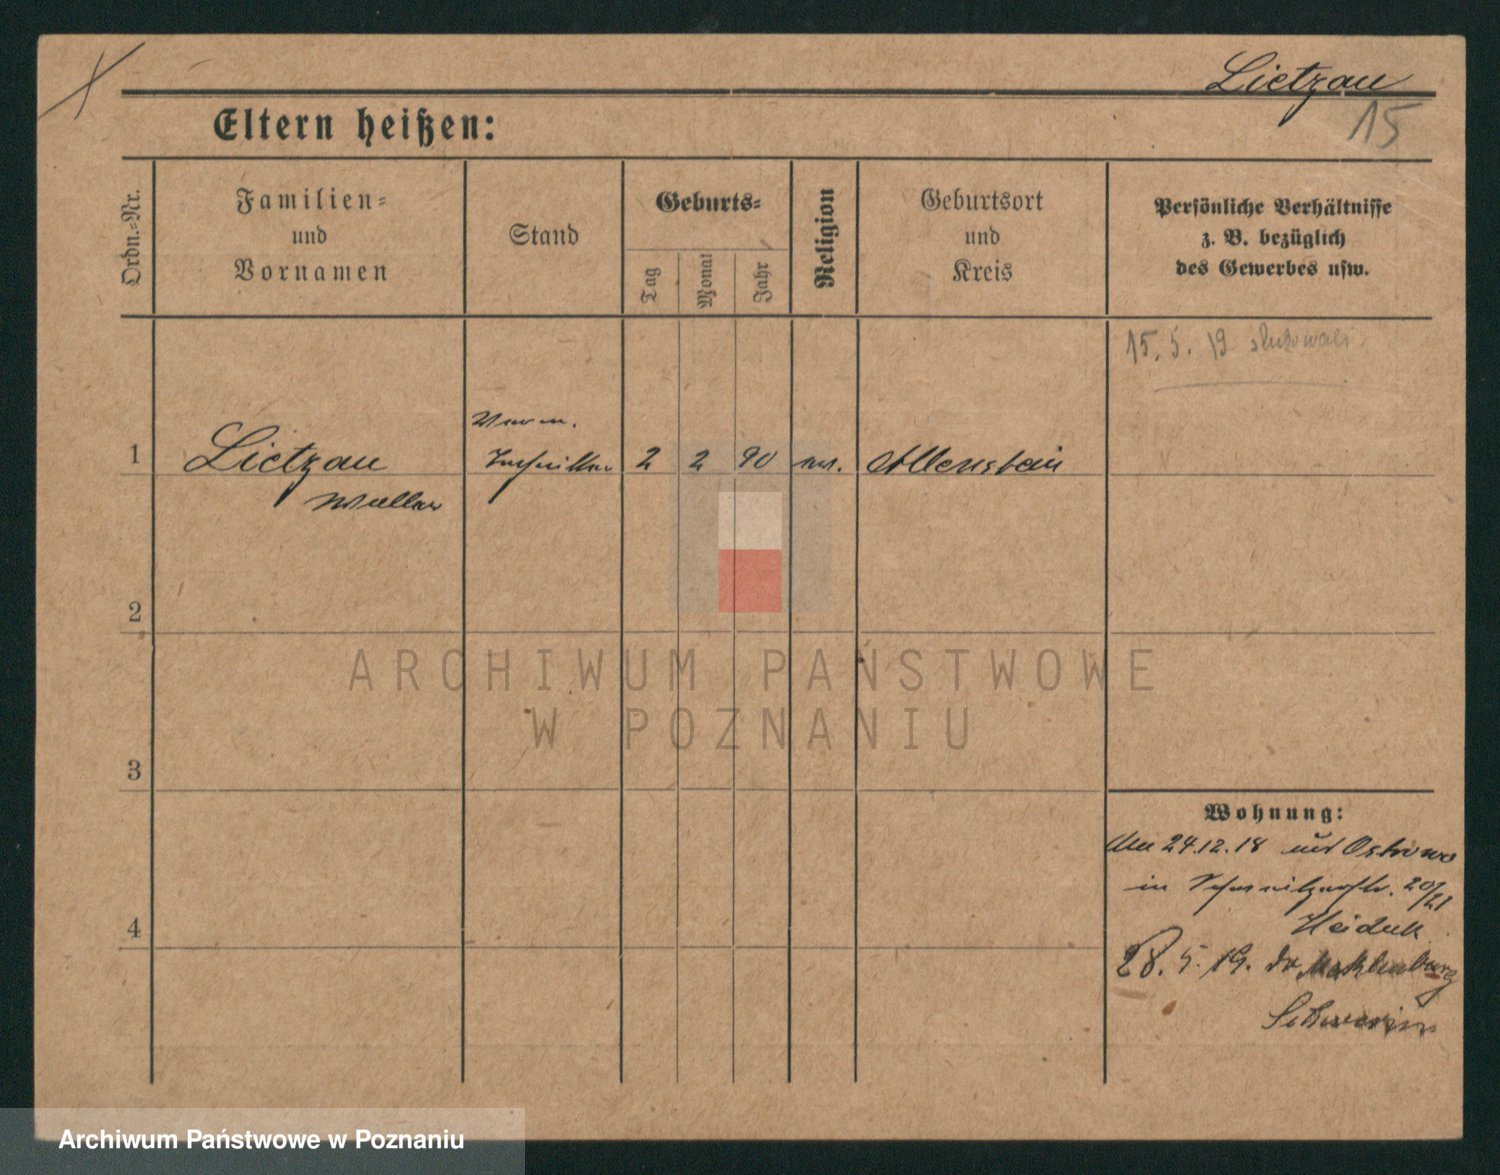 Lietzau
15
Eltern heißen:
Ordn.-Nr.
Familien-
und
Vornamen
Stand
Geburts-
Tag
Monat
Jahr
Religion
Geburtsort
und
Kreis
Persönliche Verhältnisse
z. B. bezüglich
des Gewerbes usw.
15. 5. 19
1
Lietzau
Walter
Verm.
Techniker
2 2 90 ev. Allenstein
2
ARCHIWUM PAŃSTWOWE
W POZNANIU
3
Wohnung:
den 24.12.18 Ostrowo
in 20/21
Heiduk
4
28. 5. 19. do Mecklenburg
Schwerin
Archiwum Państwowe w Poznaniu